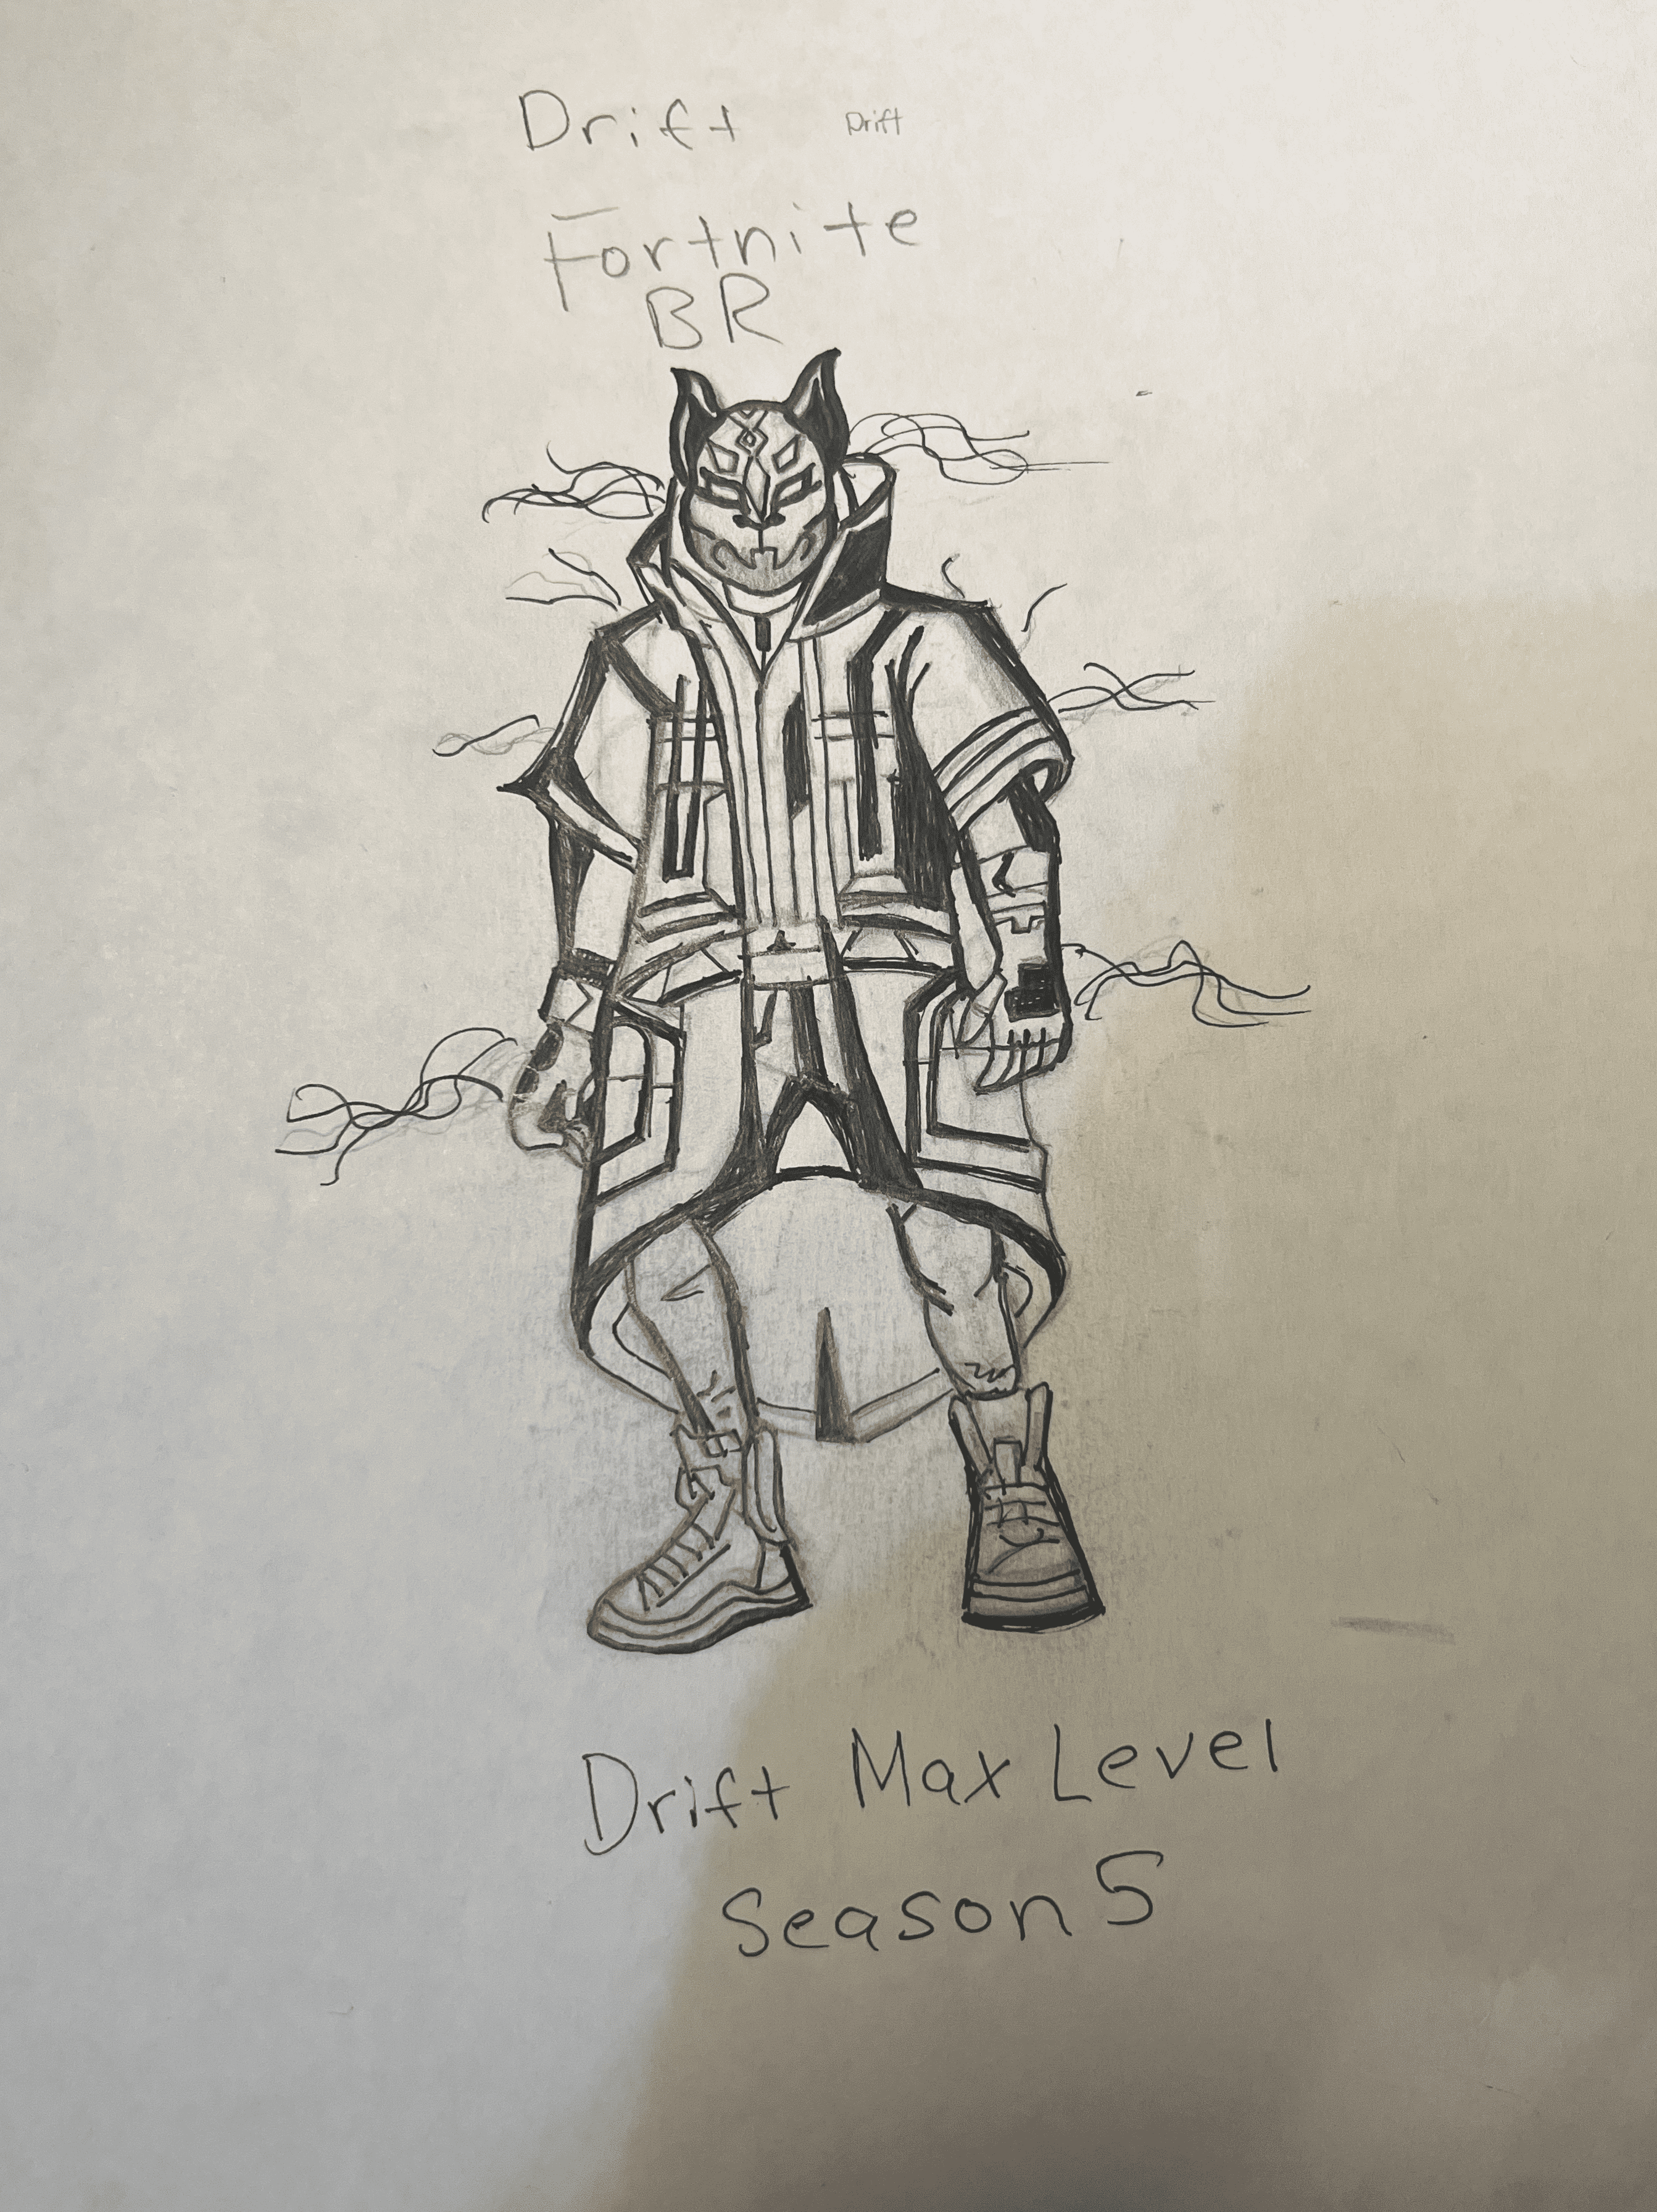 Drift Drift
Fortnite
BR
Drift Max Level
Season 5